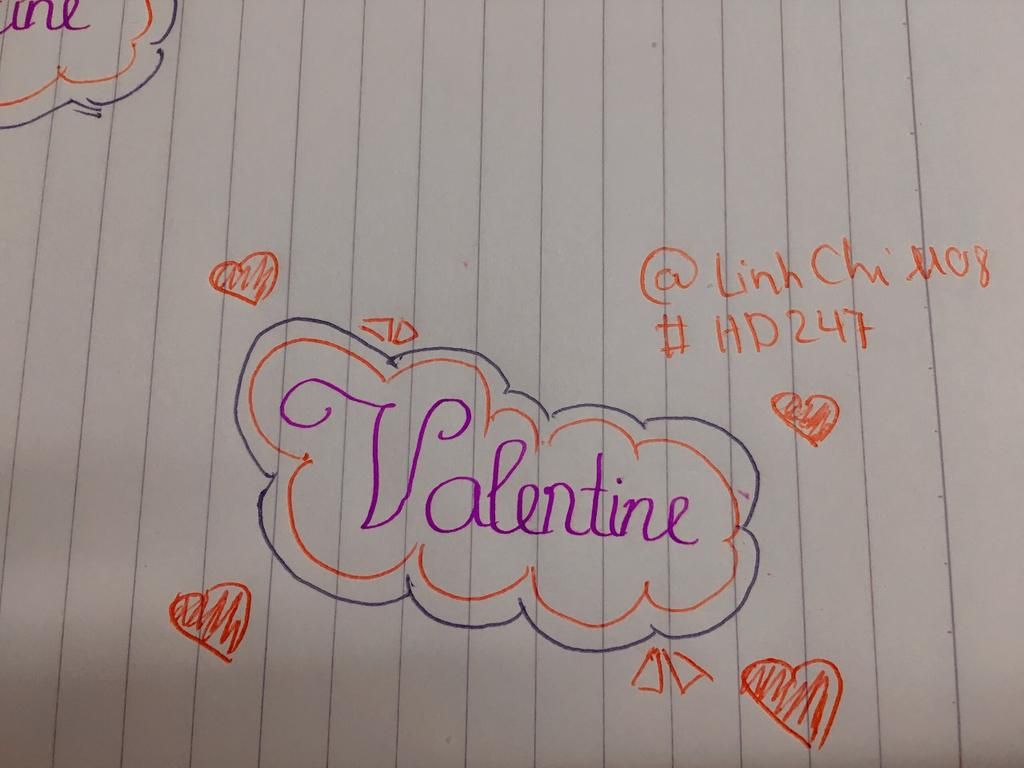 ine
@LinhChi 1108
# HD247
Valentine